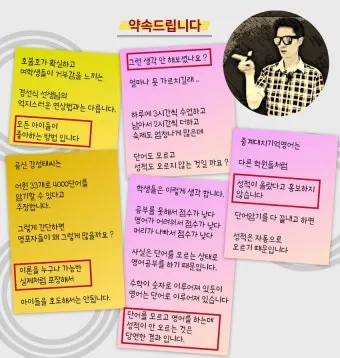 약속드립니다
호불호가 확실하고
여학생들이 거부감을 느끼는
경선식 선생님의
억지스러운 연상법과는 다릅니다.
모든 아이들이
좋아하는 방법 입니다
그런 생각 안 해보셨나요?
얼마나 못 가르치길래...
하루에 3시간씩 수업하고
남아서 2시간씩 더하고
숙제도 엄청나게 많은데
단어도 모르고
성적도 오르지 않는 것일 까요?
공신 강성태씨는
어원 33개로 4000단어를
암기할 수 있다고
주장합니다.
그렇게 간단하면
영포자들이 왜 그렇게 많을까요?
이론을 누구나 가능한
실제처럼 포장해서
아이들을 호도해서는 안됩니다.
학생들은 이렇게 생각 합니다.
공부를 못해서 점수가 낮다
영어가 어려워서 점수가 낮다
머리가 나빠서 점수가 낮다
사실은 단어를 모르는 상태로
영어공부를 하기 때문입니다.
수학이 숫자로 이루어져 있듯이
영어는 단어로 이루어져 있습니다
단어를 모르고 영어를 하는데
성적이 안 오르는 것은
당연한 결과 입니다.
중계대치기억영어는
다른 학원들처럼
성적이 올랐다고 홍보하지
않습니다
단어암기를 다 끝내고 하면
성적은 자동으로
오르기 때문입니다